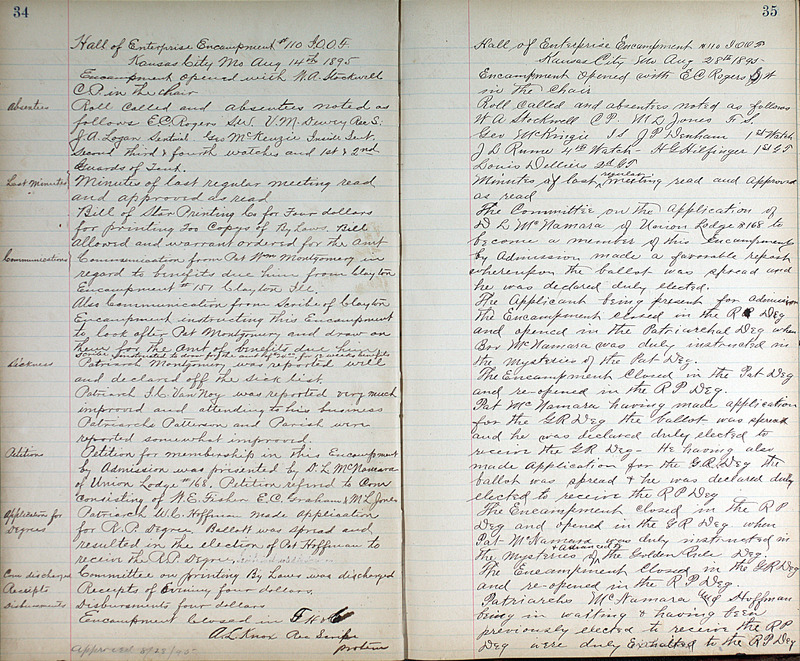 34
Hall of Enterprise Encampment #110 I.O.O.F.
Kansas City Mo Aug 14th 1895
Encampment opened with W.A. Stockwell
C.P. in the chair
Absentees
Roll called and absentees noted as
follows E.C. Rogers S.W. V.M. Dewey Rec S.
J.A. Logan Sentinel Geo McKenzie Inside Sent.
Second third & fourth watches and 1st & 2nd
Guards of Tent.
Last Minutes
Minutes of last regular meeting read
and approved as read
Bill of Star Printing Co for Four dollars
for printing 500 Copys of By Laws. Bill
allowed and warrant ordered for the Amt
Communications
Communication from Pat Wm Montgomery in
regard to benefits due him from Clayton
Encampment #157 Clayton Ill.
Also Communication from Scribe of Clayton
Encampment instructing this Encampment
to look after Pat Montgomery and draw on
them for the Amt of benefits due him
Scribe Instructed to draw for the for 12 weeks benefits
Sickness
Patriarch Montgomery was reported well
and declared off the sick list.
Patriarch I.C. VanNoy was reported very much
improved and attending to his business
Patriarchs Patterson and Parish were
reported somewhat improved.
Petitions
Petition for membership in this Encampment
by Admission was presented by D.L. McNamara
of Union Lodge #168. Petition refered to Com
consisting of W.E. Fisher E.C. Graham & M.L. Jones
Application for
Degrees
Patriarch W.C. Hoffman made Application
for R.P. Degree. Ballott was spread and
resulted in the election of Pat Hoffman to
receive the R.P. Degree.
Com discharged
Committee on printing By Laws was discharged
Receipts
Receipts of Evening four dollars.
Disbursments
Disbursments four dollars
Encampment closed in
A.L. Knox Rec Scribe
protem
Approved 8/28/95
35
Hall of Enterprise Encampment #110 I.O.O.F
Kansas City Mo Aug 28th 1895
Encampment opened with E.C. Rogers S W
in the Chair
Roll Called and absentees noted as follows
W A Stockwell C.P. M L Jones F.S.
Geo McKingie I S J P Denham 1st Watch
J D Rume 4th Watch - H G Hilfinger 1st G T
Louis Delliers 2d G T
Minutes of last regular meeting read and approved
as read
The Committee on the application of
D L McNamara of Union Lodge #168 to
become a member of this Encampment
by Admission made a favorable report
whereupon the ballot was spread and
he was declared duly elected.
The Applicant being present for admission
the Encampment closed in the R P Deg
and opened in the Patriarchal Deg when
Bro McNamara was duly instructed in
the mysteries of the Pat Deg.
The Encampment Closed in the Pat Deg
and re-opened in the R P Deg.
Pat McNamara having made application
for the G R Deg the ballot was spread
and he was declared duly elected to
receive the G R Deg - He having also
made application for the G.R. Deg the
ballot was spread & he was declared duly
elected to receive the R P Deg
The Encampment closed in the R P
Deg and opened in the G R Deg when
Pat McNamara was duly instructed in
the Mysteries & Advanced to the Golden Rule Deg.
The Encampment Closed in the G R Deg
and re-opened in the R P Deg.
Patriarchs McNamara and Hoffman
being in waiting & having been
previously elected to receive the R P
Deg were duly Exhalted to the R P Deg